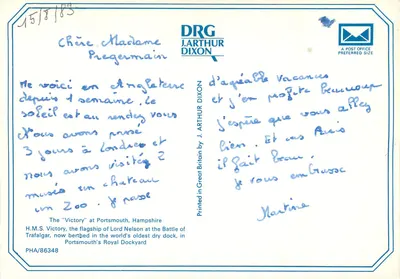 15/8/89
Chère Madame
Pregermain
Me voici en Angleterre
depuis 1 semaine. le
soleil est au rendez vous
Nous avons passé
3 jours à Londres et
nous avons visités 2
musés un chateau
un Zoo. Je passe
d'agréable vacances
et j'en profite beaucoup
j'espère que vous allez
bien. Et
il fait beau.
Je vous embrasse
Martine
DRG
J.ARTHUR
DIXON
A POST OFFICE
PREFERRED SIZE
Printed in Great Britain by J. ARTHUR DIXON
The "Victory" at Portsmouth, Hampshire
H.M.S. Victory, the flagship of Lord Nelson at the Battle of
Trafalgar, now berthed in the world's oldest dry dock, in
Portsmouth's Royal Dockyard
PHA/86348